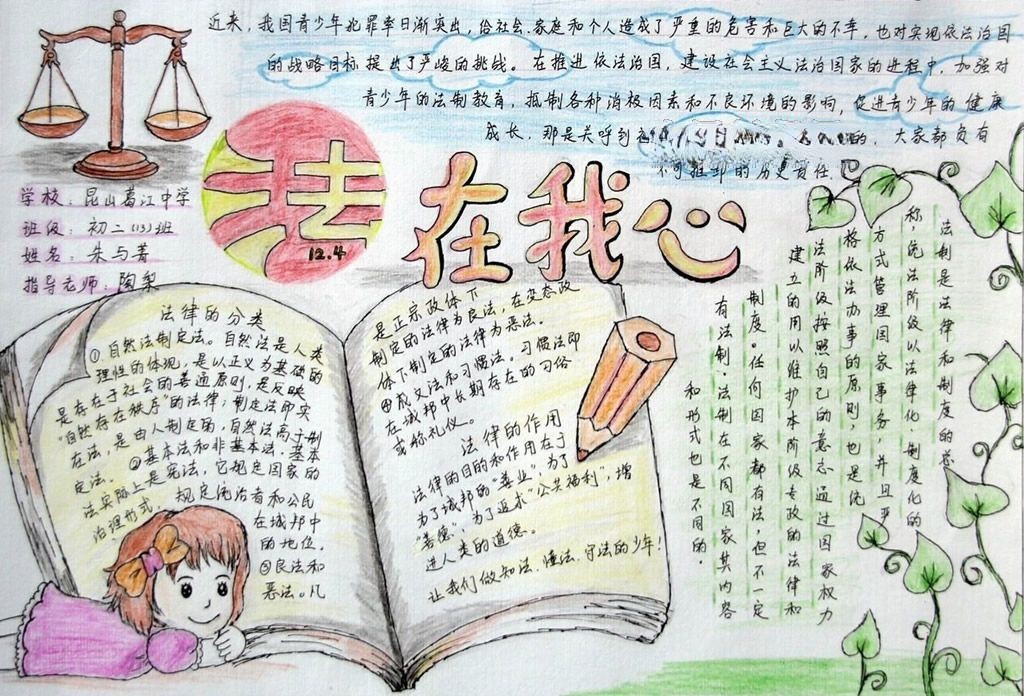 近来，我国青少年犯罪率日渐突出，给社会、家庭和个人造成了严重的危害和巨大的不幸，也对实现依法治国
的战略目标提出了严峻的挑战。在推进依法治国，建设社会主义法治国家的进程中，加强对
青少年的法制教育，抵制各种消极因素和不良环境的影响，促进青少年的健康
成长，那是关呼到 的，大家都负有
不可推卸的历史责任。
学校：昆山葛江中学
班级：初二(13)班
姓名：朱与菁
指导老师：陶梨
法在我心
12.4
法律的分类
①自然法制定法。自然法是人类
理性的体现，是以正义为基础的
是存在于社会的普通原则，是反映
"自然存在秩序"的法律；制定法即实
在法，是由人制定的，自然法高于制
定法。②基本法和非基本法，基本
法实际上是宪法，它规定国家的
治理形式，规定统治者和公民
在城邦中
的地位。
③良法和
恶法。凡
是正宗政体下
制定的法律为良法，在变态政
体下制定的法律为恶法。
④成文法和习惯法。习惯法即
在城邦中长期存在的习俗
或称礼仪。
法律的作用
法律的目的和作用在于
为了城邦的"善业"，为了
"善德"，为了追求"公共福利"，增
进人类的道德。
让我们做知法、懂法、守法的少年！
法制是法律和制度的总
称，统法阶级以法律化、制度化的
方式管理国家事务，并且严
格依法办事的原则，也是统
法阶级按照自己的意志通过国家权力
建立的用以维护本阶级专政的法律和
制度。任何国家都有法，但不一定
有法制。法制在不同国家其内容
和形式也是不同的。